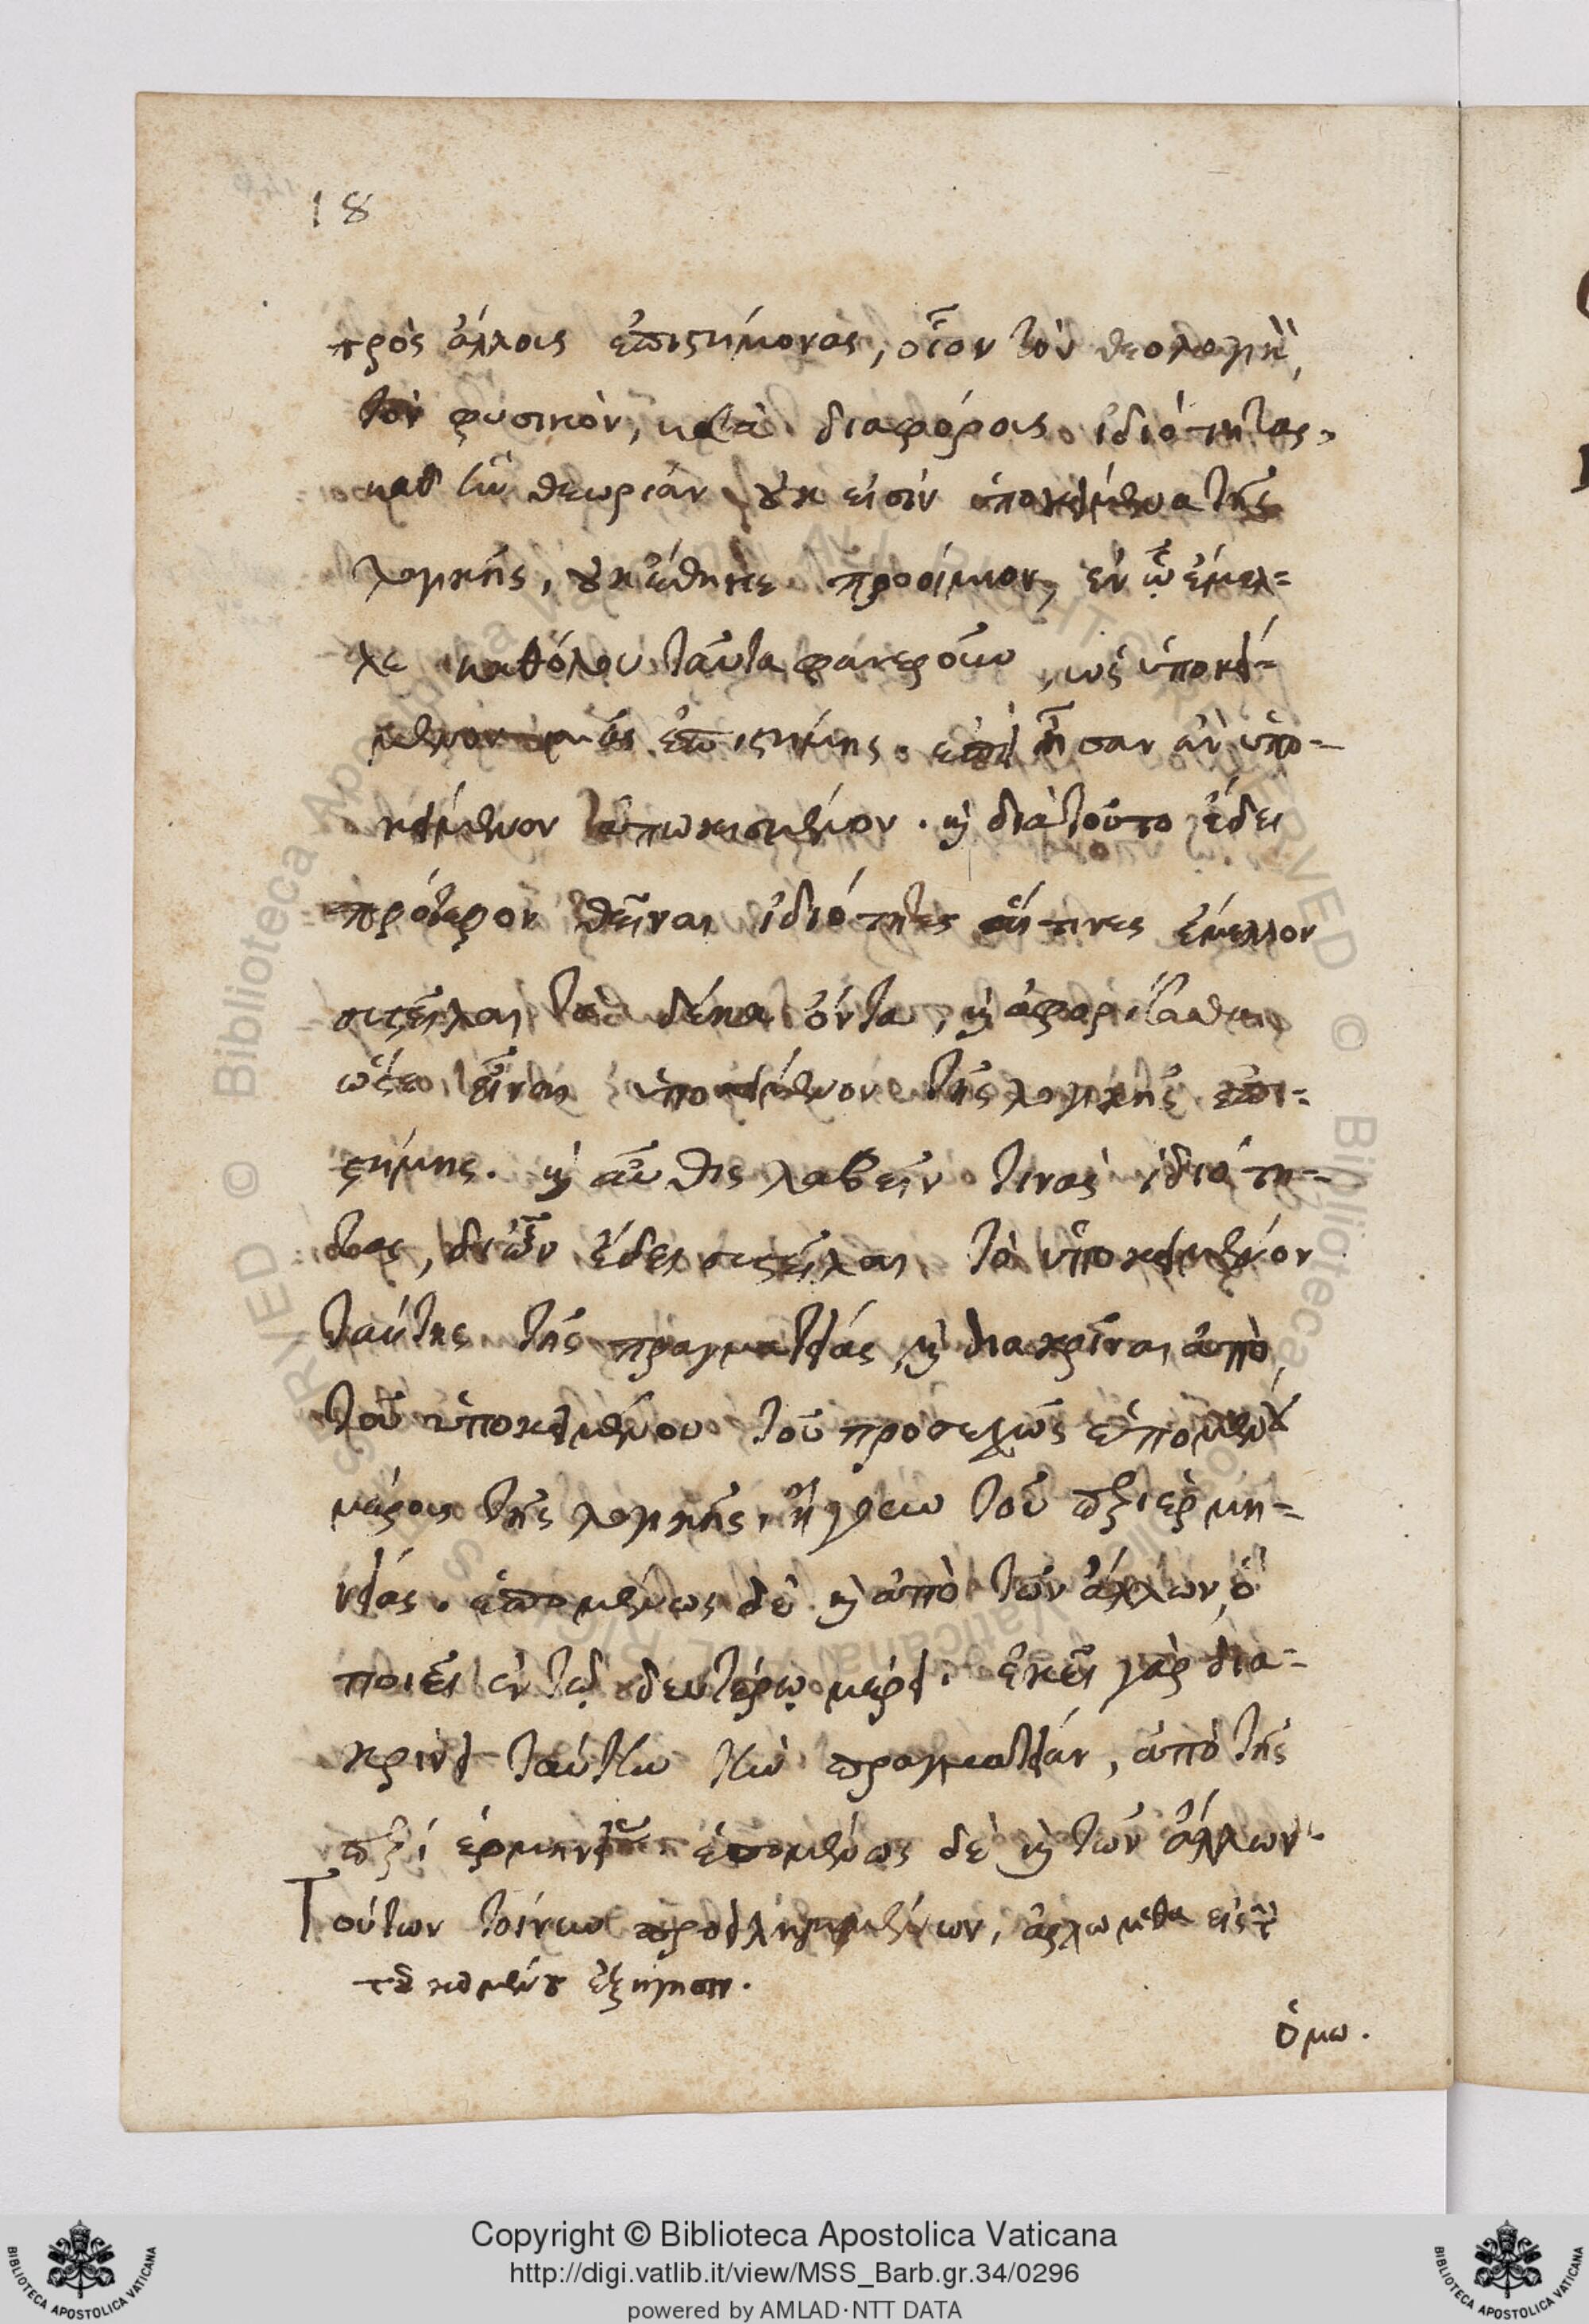 18
πρὸς ἄλλους ἐπιστήμονας, οἷον τὸν θεολογικὸν,
τὸν φυσικὸν, κατὰ διαφόρους ἰδιότητας,
καθ' ἣν θεωρίαν οὐκ εἰσὶν ὑποκείμενα τῆς
λογικῆς, οὐκ ἔθηκε προοίμιον, ἐν ᾧ ἔμελ-
λε καθόλου ταῦτα φανεροῦν, ὡς ὑποκεί-
μενον μιᾶς ἐπιστήμης. ἐπεὶ ἦσαν ἂν ὑπο-
κείμενον . καὶ διὰ τοῦτο ἔδει
πρότερον θεῖναι ἰδιότητες αἵτινες ἔμελλον
συστεῖλαι τὰ δέκα ὄντα, καὶ ἀφορίσασθαι
ὥστε εἶναι ὑποκείμενον τῆς λογικῆς ἐπι-
στήμης. καὶ αὖθις λαβεῖν τινὰς ἰδιότη-
τας, δι' ὧν ἔδει συστεῖλαι τὸ ὑποκείμενον
ταύτης τῆς πραγματείας, καὶ διακρῖναι ἀπὸ
τοῦ ὑποκειμένου τοῦ προσεχῶς ἑπομένου
μέρους τῆς λογικῆς, ἤγουν τοῦ περὶ ἑρμη-
νείας. ἑπομένως δὲ καὶ ἀπὸ τῶν ἄλλων, ὃ
ποιεῖ ἐν τῷ δευτέρῳ μέρει. ἐκεῖ γὰρ δια-
κρινεῖ ταύτην τὴν πραγματείαν, ἀπὸ τῆς
περὶ ἑρμηνείας ἑπομένως δὲ καὶ τῶν ἄλλων.
Τούτων τοίνυν προειλημμένων, ἀρχώμεθα εἰς τὴν
τοῦ κειμένου ἐξήγησιν.
ὁμω.
Copyright © Biblioteca Apostolica Vaticana
http://digi.vatlib.it/view/MSS_Barb.gr.34/0296
powered by AMLAD·NTT DATA